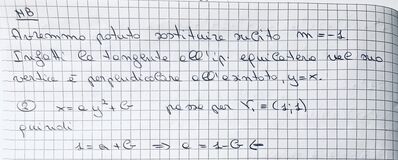 NB
Avremmo potuto sostituire subito m=-1
Infatti la tangente all'ip. equilatera nel suo
vertice è perpendicolare all'asintoto, y=x.
② x=ay²+G passa per V₁=(1;1)
quindi
1=a+G ⇒ a=1-G ←